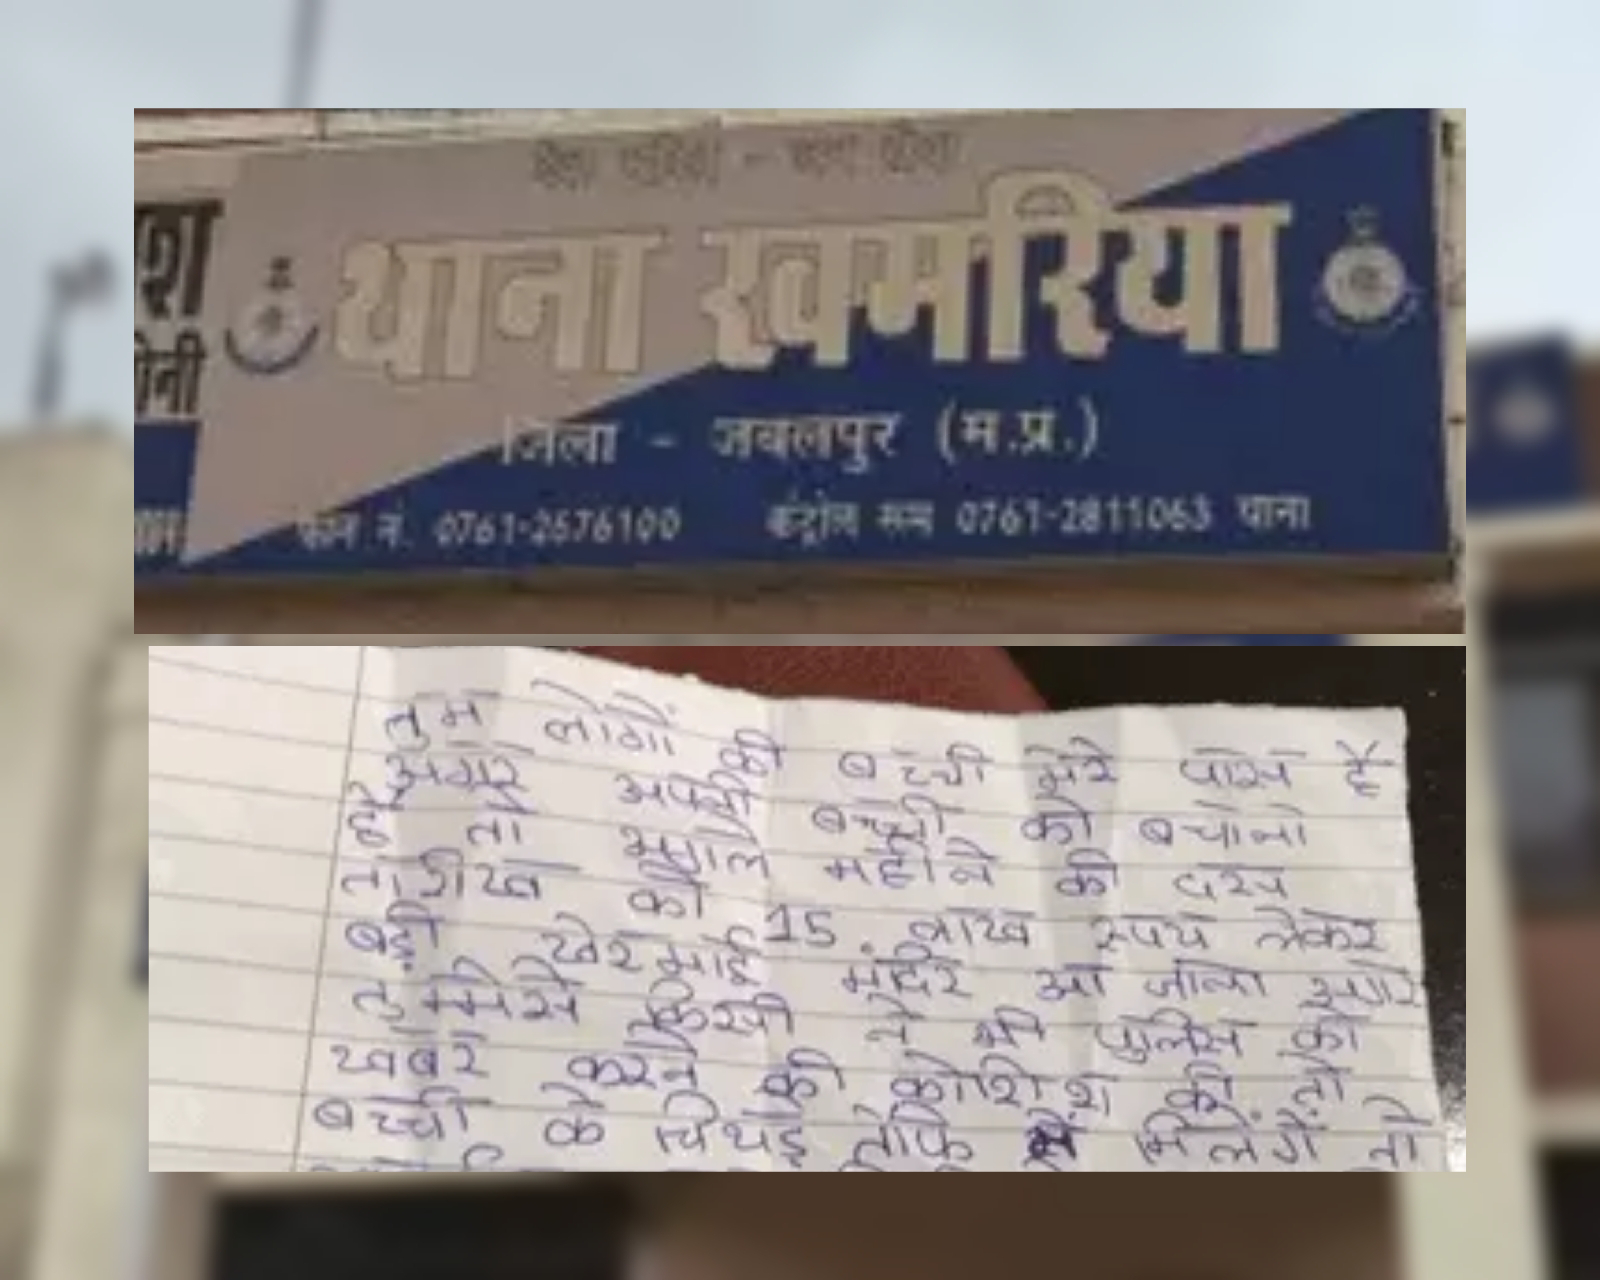 देश भक्ति - जन सेवा
थाना खमरिया
जिला - जबलपुर (म.प्र.)
फोन नं. 0761-2676100 कंट्रोल रूम 0761-2811063 थाना
तुम लोगों की बच्ची मेरे पास है
अगर अपनी बच्ची को बचाना
है तो अगले महीने की दस
तारीख को 15 लाख रूपय लेकर
बड़ी खेरमाई मंदिर आ जाना अगर
तुममेसे किसी ने भी पुलिस को
खबर करने की कोशिश की तो
बच्ची के चिथड़े तोफे में मिलेगें तो